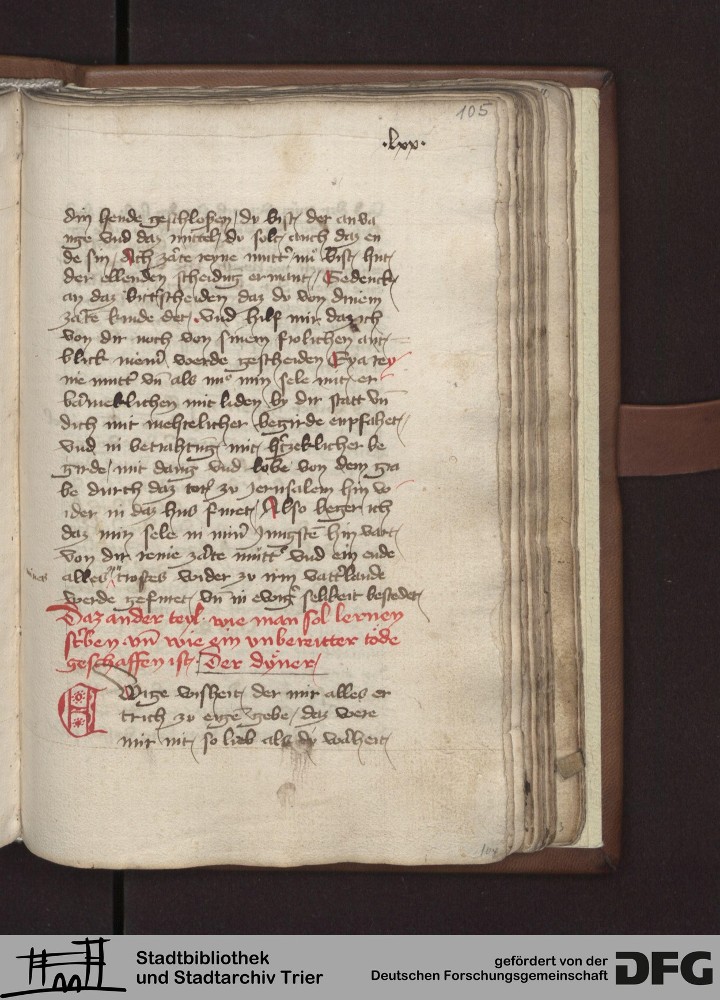 105
·lxx·
din hende geschloßen / du bist der anva
nge vnd daz mittel / du solt auch daz en
de sin / Ach zarte reyne mutter nu bist hut
der ellenden scheidung ermant / Gedenck
an daz bitter scheiden daz du von dinem
zarte kinde det / vnd hilf mir daz ich
von dir noch von sinem frolichen ant
blick niemer werde gescheiden Eya rey
ne mutter vn als min sele mit er
barmeklichen mit liden by dir statt vn
dich mit begirde enpfahet /
vnd in betrahtung mit hertzeklicher be
girde / mit dang vnd lobe von dem gra
be durch daz tor zu Jerusalem hin wi
ider in daz hus furet / Also beger ich
daz min sele in miner Jungste hin vart
von dir reine zarte mutter vnd ein ende
alles trostes wider zu irm vatterlande
werde gefuret / vn in ewiger selikeit bestedet /
Daz ander teyl · wie man sol lernen
sterben vn wie ein vnbereitter tode
geschaffen ist · Der dyner /
EWige wisheit / der mir alles er
trich zu eygen gebe / daz were
mir nit / so lieb als dy warheit /
104
Stadtbibliothek
und Stadtarchiv Trier
gefördert von der
Deutschen Forschungsgemeinschaft
DFG